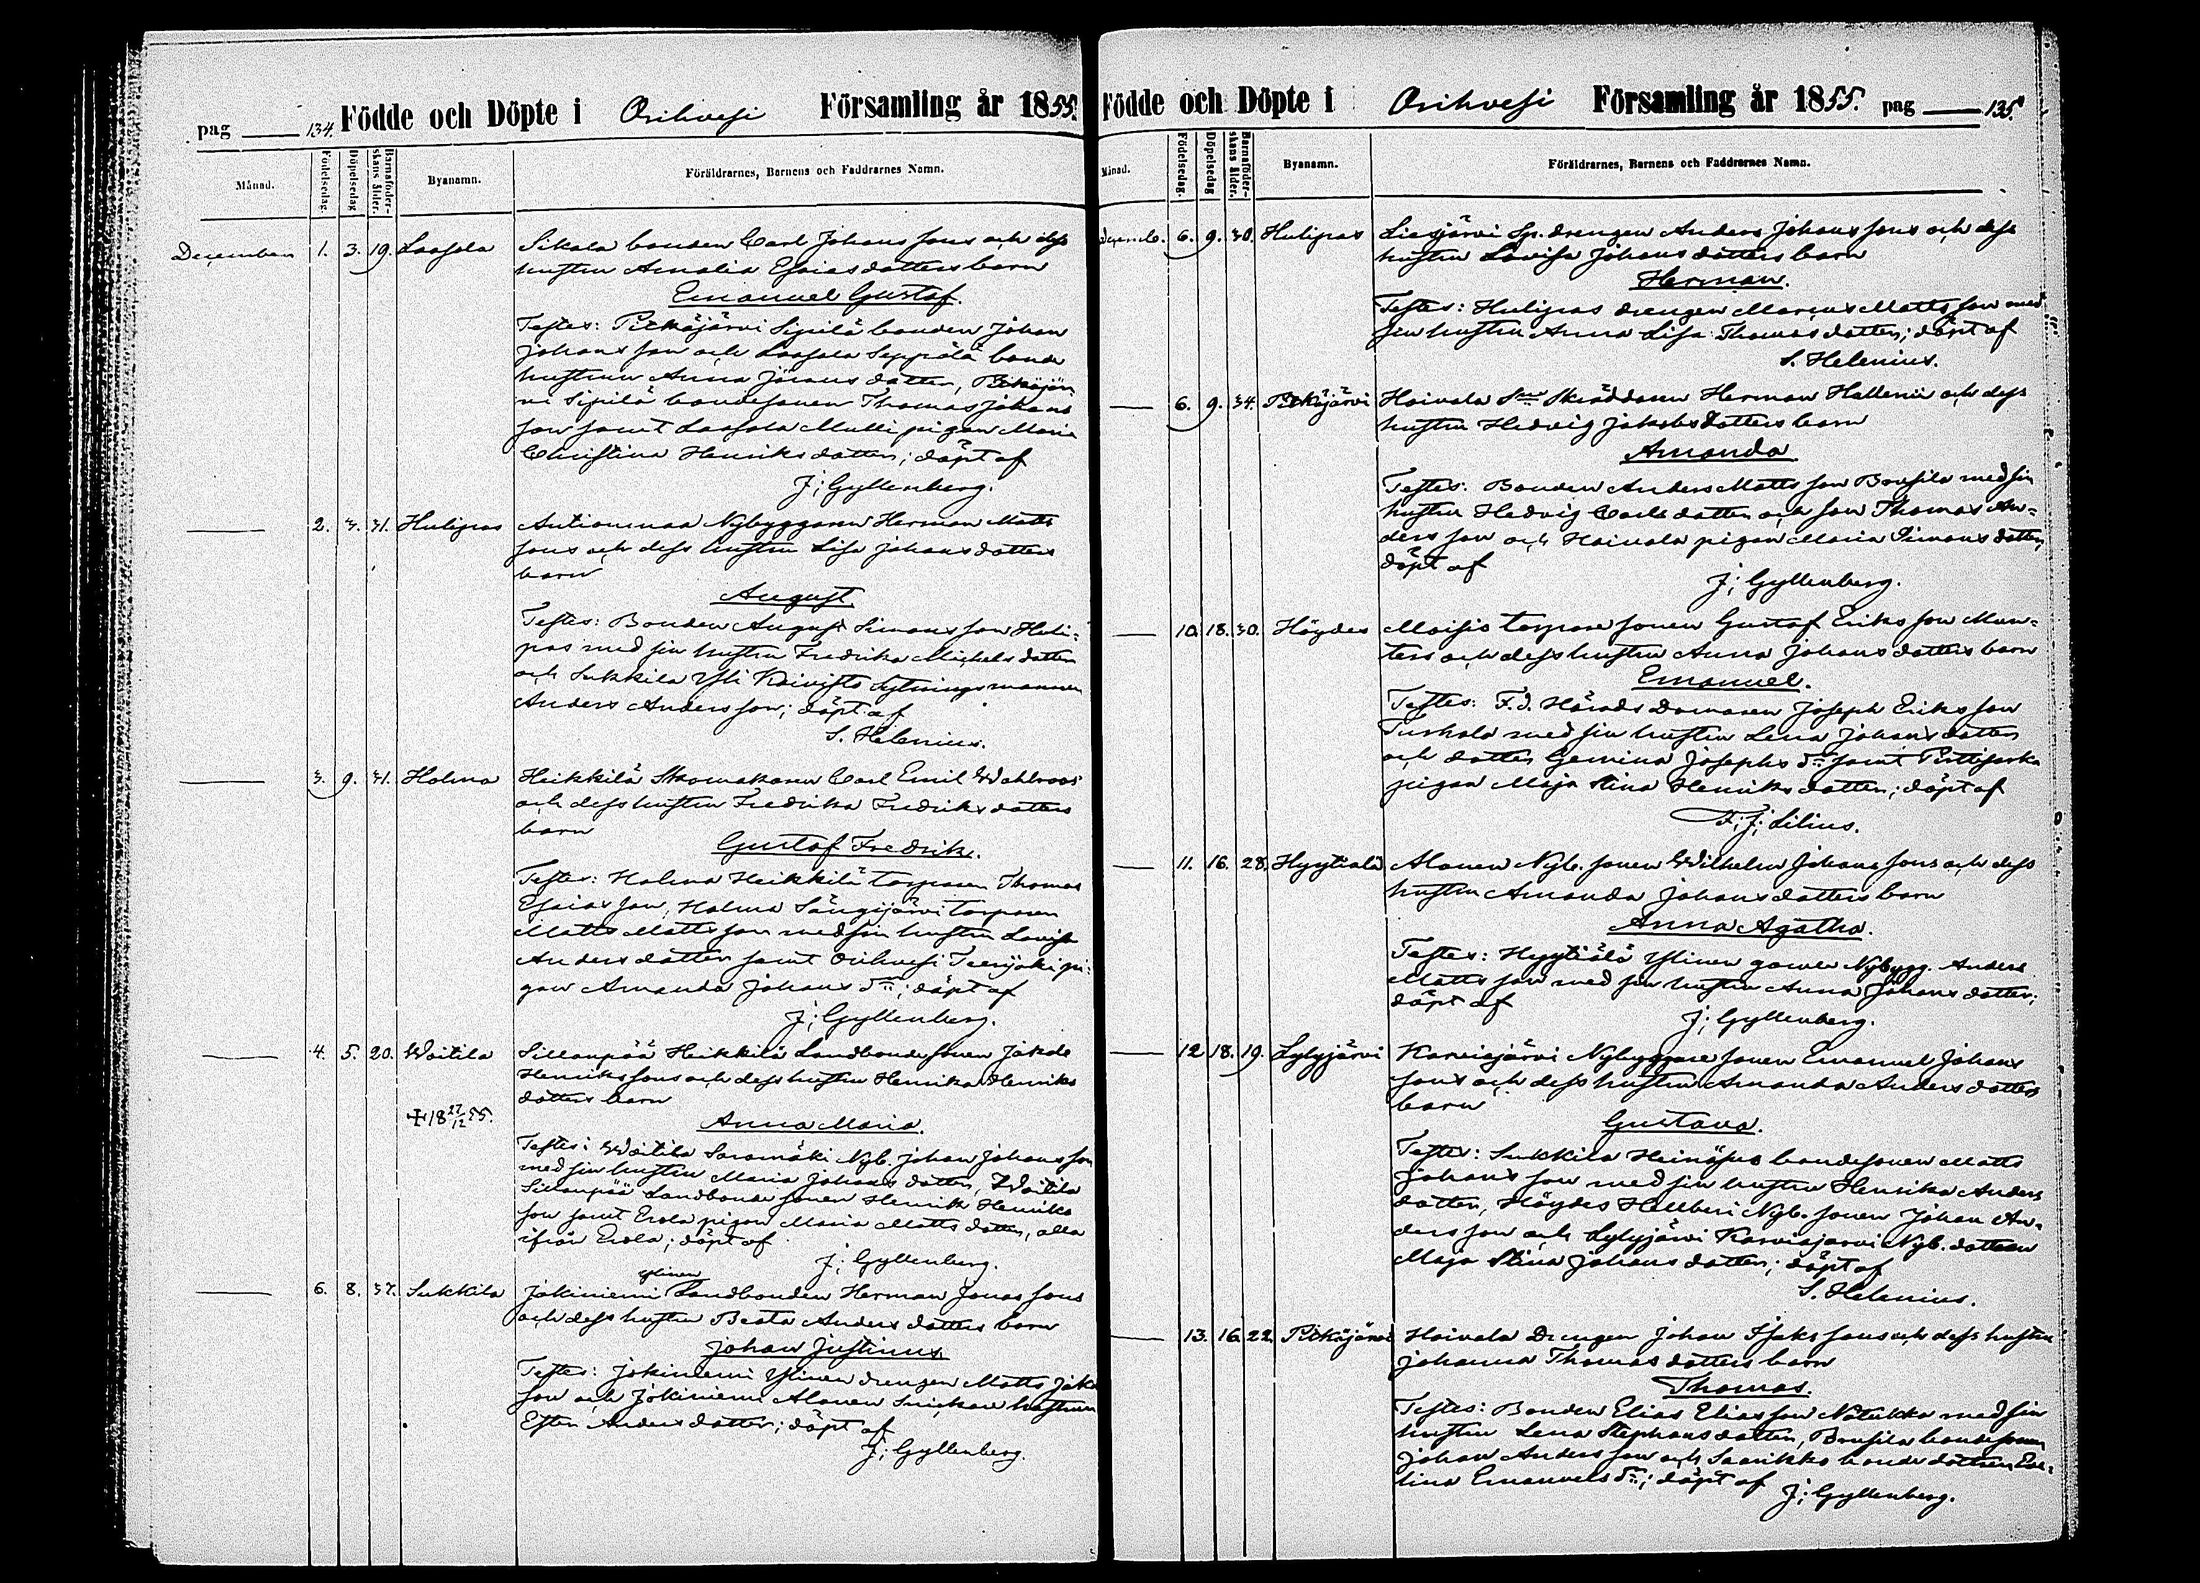 pag 134. Födde och Döpte i Orihvesi Församling år 1855.
Månad. Födelsedag. Döpelsedag Barnaföderskans ålder. Byanamn. Föräldrarnes, Barnens och Faddrarnes Namn.
December 1. 3. 19. Laasola Sikala bonden Carl Johanssons och dess
hustru Amalia Esaiasdotters barn
Emanuel Gustaf.
Testes: Pitkäjärvi Sipilä bonden Johan
Johansson och Laasola Seppälä bonde
hustrun Anna Jöransdotter, Pitkäjär
vi Sipilä bondesonen Thomas Johans
son samt Laasola Mulli pigan Maria
Christina Henriksdotter; döpt af
J; Gyllenberg.
2. 3. 31. Huligas Antiomaa Nybyggaren Herman Matts
sons och dess hustru Lisa Johansdotters
barn
August.
Testes: Bonden August Simonsson Huli-
pas med sin hustru Fredrika Michelsdotter
och Sukkila Yli Koivisto Sytningsmannen
Anders Andersson; döpt af
S. Helenius.
3. 9. 31. Holma Heikkilä Skomakaren Carl Emil Wahlroos
och dess hustru Fredrika Fredriksdotters
barn
Gustaf Fredrik.
Testes: Holma Heikkilä torparen Thomas
Esaiasson, Holma Sängijärvi torparen
Matts Mattsson med sin hustru Lovisa
Andersdotter samt Orihvesi Teerijoki pi-
gan Amanda Johansdr; döpt af
J; Gyllenberg.
4. 5. 20. Woitila Sillanpää Heikkilä Landbondesonen Jakob
Henrikssons och dess hustru Henrika Henriks
dotters barn
+18 27/12 55. Anna Maria.
Testes: Woitila Saramäki Nyb. Johan Johansson
med sin hustru Maria Johansdotter, Woitila
Sillanpää Landbonde sonen Henrik Henriks
son samt Erola pigan Maria Mattsdotter, alla
ifrån Erola; döpt af
J; Gyllenberg.
Ylinen
6. 8. 37. Sukkila Jokiniemi Landbonden Herman Jonassons
och dess hustru Beata Andersdotters barn
Johan Justinus
Testes: Jokiniemi Ylinen drengen Matts Jakobs
son och Jokiniemi Alanen Snickare hustrun
Ester Andersdotter; döpt af
J; Gyllenberg.
Födde och Döpte i Orihvesi Församling år 1855. pag 135.
Månad. Födelsedag. Döpelsedag Barnaföderskans ålder. Byanamn. Föräldrarnes, Barnens och Faddrarnes Namn.
Decemb. 6. 9. 30. Huligas Liesjärvi Sp. drengen Anders Johanssons och dess
hustru Lovisa Johansdotters barn
Herman.
Testes: Huligas drengen Marcus Mattsson med
sin hustru Anna Lisa Thomasdotter; döpt af
S. Helenius.
6. 9. 34. Pitkäjärvi Hoivala Skräddaren Herman Hallenii och dess
hustru Hedvig Jakobsdotters barn
Amanda
Testes: Bonden Anders Mattsson Bonsila med sin
hustru Hedvig Carlsdotter och son Thomas An-
dersson och Hoivala pigan Maria Simonsdotter,
döpt af
J; Gyllenberg.
10. 18. 30. Höydes Moisio torpare sonen Gustaf Eriksson Mun-
ters och dess hustru Anna Johansdotters barn
Emanuel.
Testes: F.d. Häradsdomaren Joseph Eriksson
Turkola med sin hustru Lena Johansdotter
och dotter Gemina Josephsdr samt Puttisarka
pigan Maja Stina Henriksdotter; döpt af
F; J; Lilius.
11. 16. 28. Hyytiälä Alanen Nyb. sonen Wilhelm Johanssons och dess
hustru Amanda Johansdotters barn
Anna Agatha.
Testes: Hyytiälä Ylinen gamla Nybygg. Anders
Mattsson med sin hustru Anna Johansdotter;
döpt af
J; Gyllenberg.
12 18. 19. Lylyjärvi Karviajärvi Nybyggare sonen Emanuel Johans
sons och dess hustru Amanda Andersdotters
barn
Gustava.
Testes: Sukkila Heinäsuo bondesonen Matts
Johansson med sin hustru Henrika Anders
dotter, Höydes Hellberi Nyb. sonen Johan An-
dersson och Lylyjärvi Karviajarvi Nyb. dottren
Maja Stina Johansdotter; döpt af
S. Helenius.
13. 16. 22. Pitkäjärvi Hoivala Drengen Johan Isakssons och dess hustru
Johanna Thomasdotters barn
Thomas.
Testes: Bonden Elias Eliasson Natukka med sin
hustru Lena Stephansdotter, Bonsila bondesonen
Johan Andersson och Saarikko bonde dottren Eve-
lina Emanuelsdr; döpt af
J; Gyllenberg.